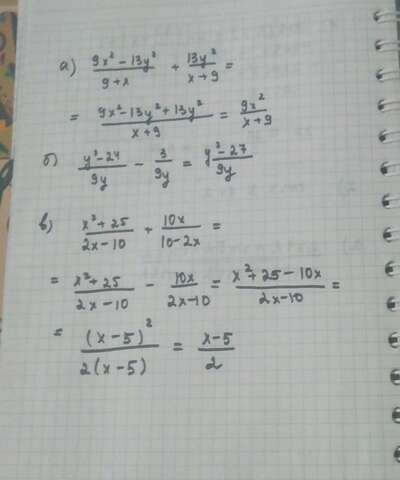 а) (9x² - 13y²)/(9+x) + 13y²/(x+9) =
= (9x² - 13y² + 13y²)/(x+9) = 9x²/(x+9)
б) (y³ - 24)/9y - 3/9y = (y³ - 27)/9y
в) (x² + 25)/(2x - 10) + 10x/(10 - 2x) =
= (x² + 25)/(2x - 10) - 10x/(2x - 10) = (x² + 25 - 10x)/(2x - 10) =
= (x - 5)²/2(x - 5) = (x - 5)/2